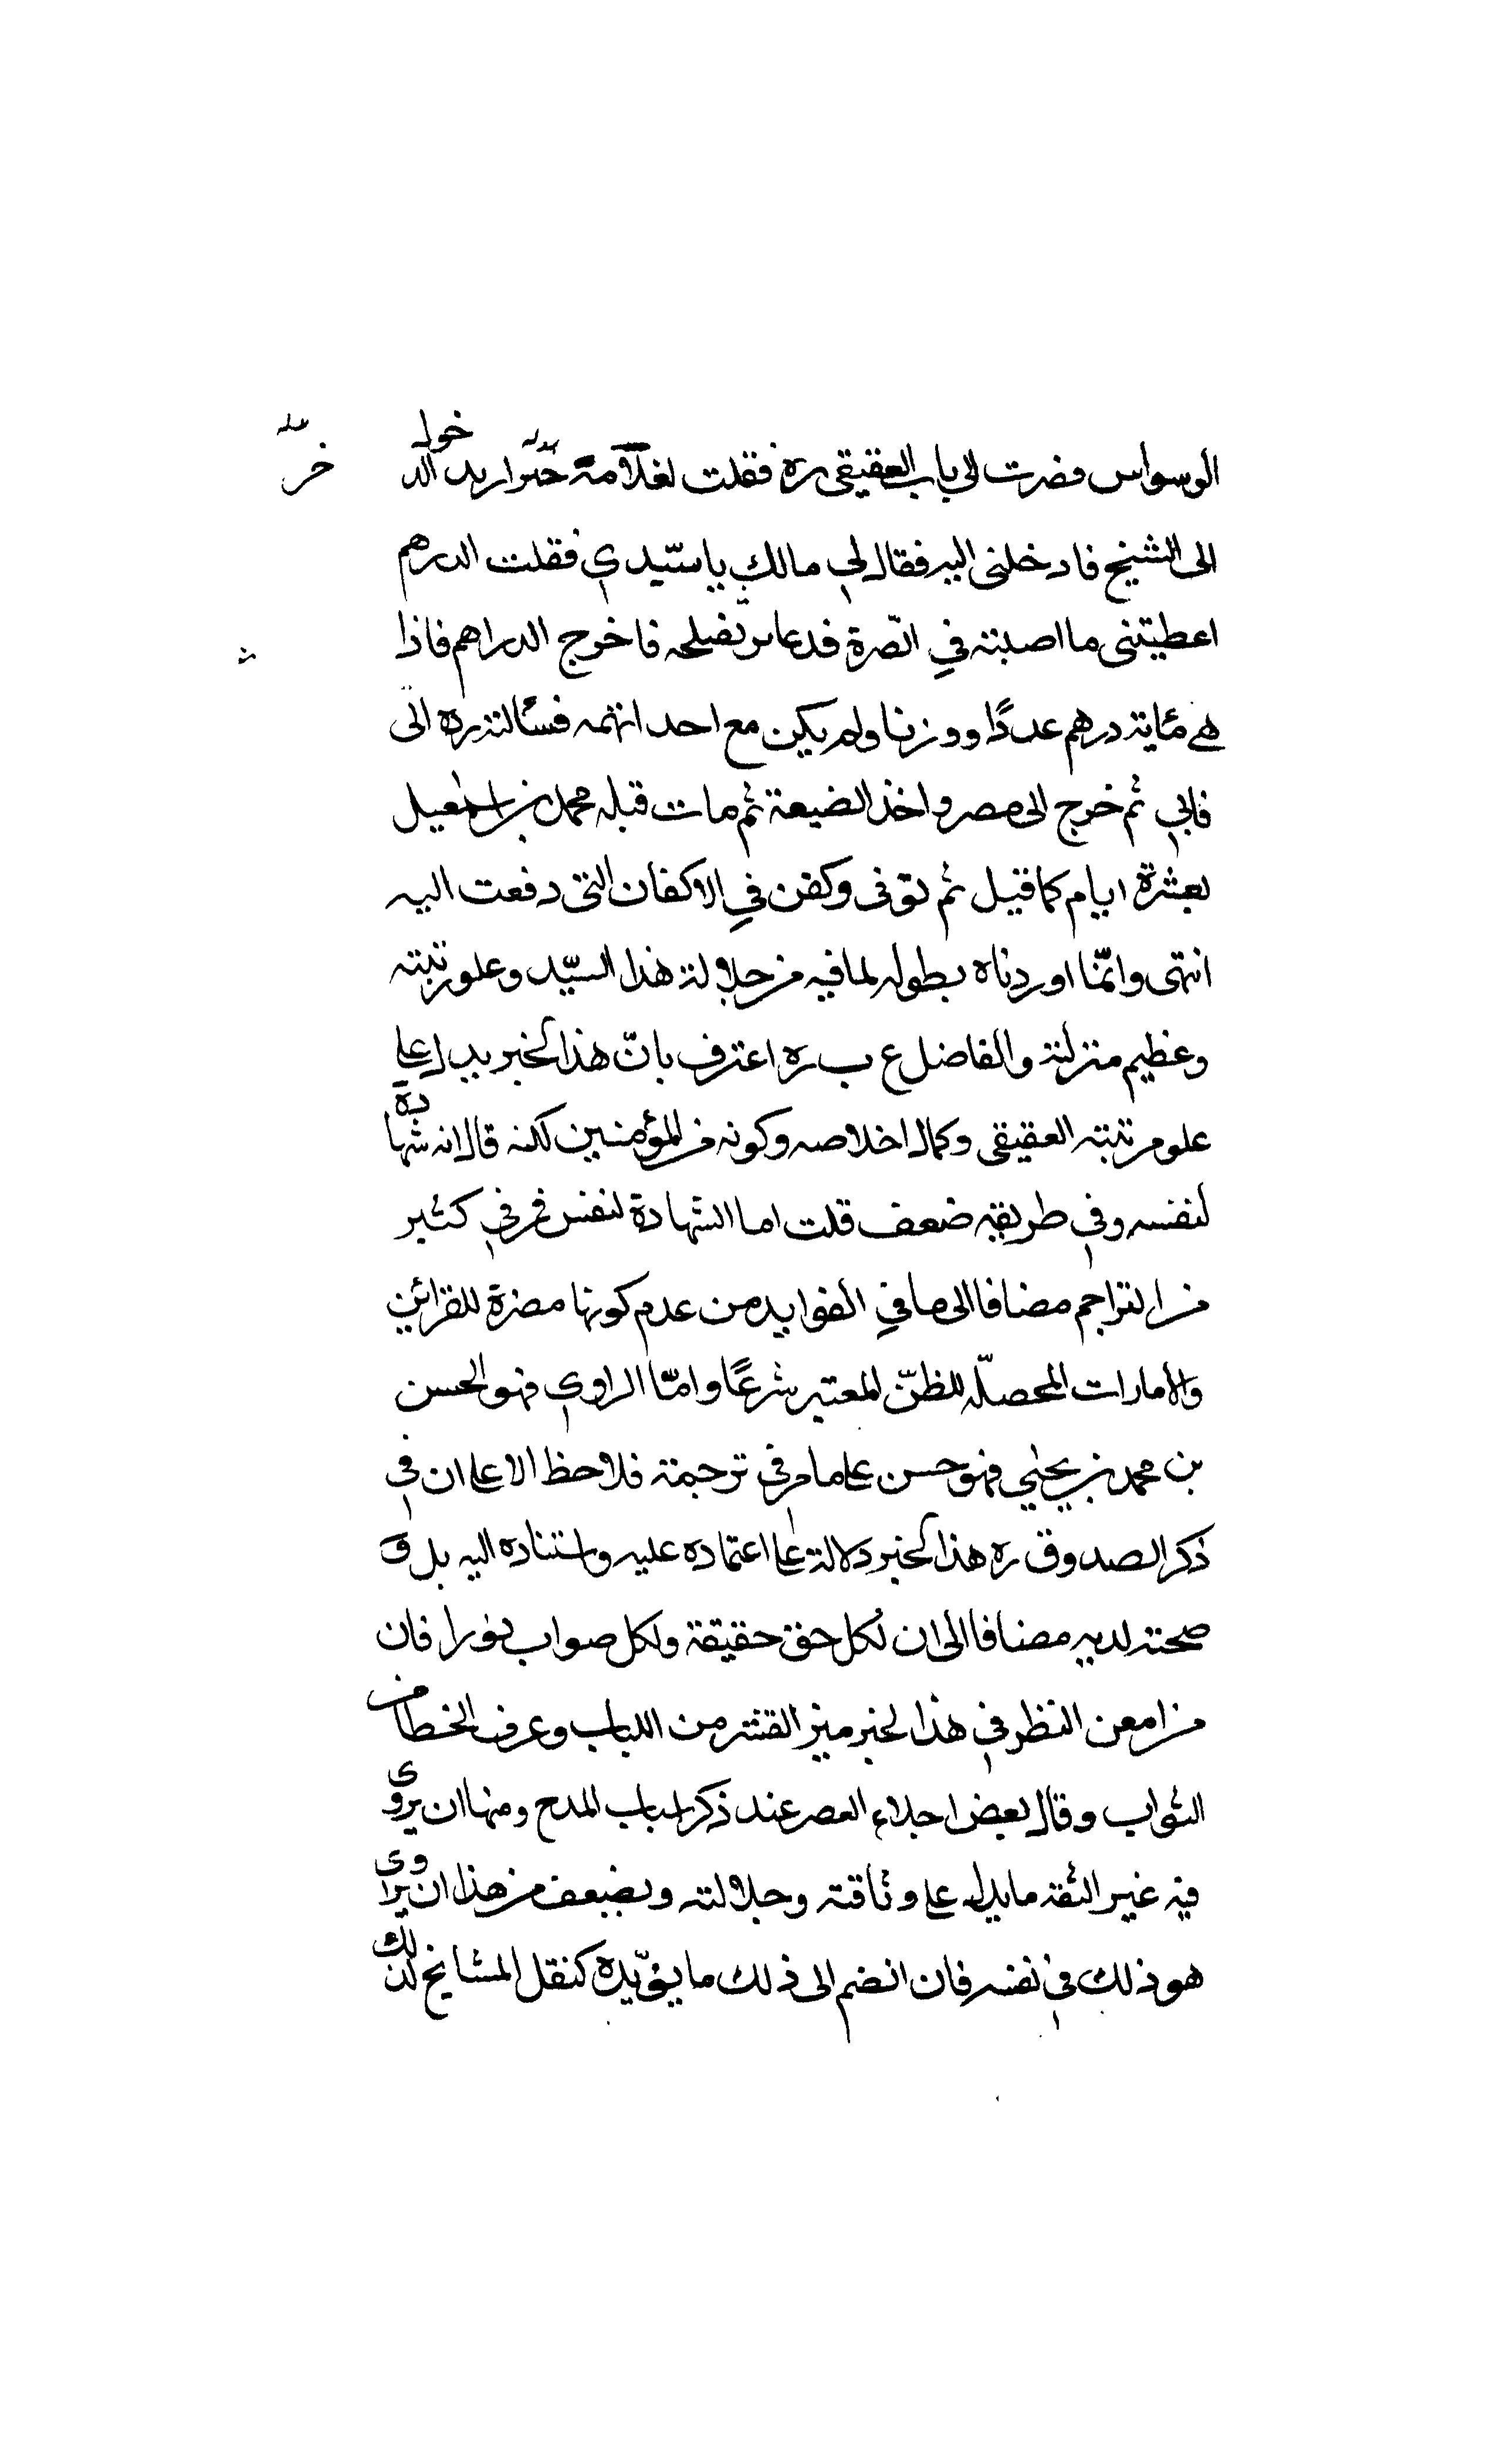 الوسواس فصرت الى باب العقيقى ره فقلت لغلامه خير اريد الدخول
خر
الى الشيخ فادخلنى اليه فقال لي مالك يا سيّدي فقلت الدرهم
اعطيتنى ما اصبته في الصّرة فدعا بزنفيلجه فاخرج الدراهم فاذا
هي مئاية درهم عددًا ووزنا ولم يكن مع احد اتهمه فسألته رده الىّ
فابي ثم خرج الى مصر واخذ الضيعة ثم مات قبله محمد بن اسمعيل
بعشرة ايام كما قيل ثم توفى وكفن في الاكفان التى دفعت اليه
انتهى وانّما اوردناه بطوله لما فيه من جلالة هذا السيّد وعلو رتبته
وعظيم منزلته والفاضل ع ب ره اعترف بانّ هذا الخبر يدل على
علو مرتبته العقيقى وكمال اخلاصه وكونه من المؤمنين لكنه قال انه شهادة
لنفسه وفي طريقه ضعف قلت اما الشهادة لنفس فمر في كثير
من التراجم مضافا الى ما في الفوايد من عدم كونها مضرة للقرائن
والامارات المحصلّه للظنّ المعتبر شرعًا وامّا الراوي فهو الحسن
بن محمد بن يحيي فهو حسن على ما مر في ترجمته فلاحظ الا على ان في
ذكر الصدوق ره هذا الخبر دلالة على اعتماده عليه واستناده اليه بل و
صحته لديه مضافا الى ان لكل حق حقيقة ولكل صواب نورا فان
من امعن النظر في هذا الخبر ميز القشر من اللباب وعرف الخطا من
الثواب وقال بعض اجلاء العصر عند ذكر اسباب المدح ومنها ان يروى
فيه غير الثقة ما يدل على وثاقته وجلالته ويضعف من هذا ان يروى
هو ذلك في نفسه فان انضم الى ذلك ما يؤيّده كنقل المشايخ لذلك